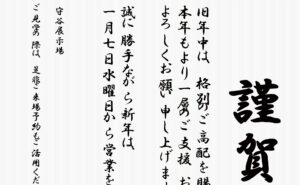 謹賀
旧年中は、格別ご高配を賜
本年もより一層のご支援、お
よろしくお願い申し上げま
誠に勝手ながら新年は、
一月七日水曜日から営業を
守谷展示場
ご見学の際は、是非ご来場予約もご活用くだ